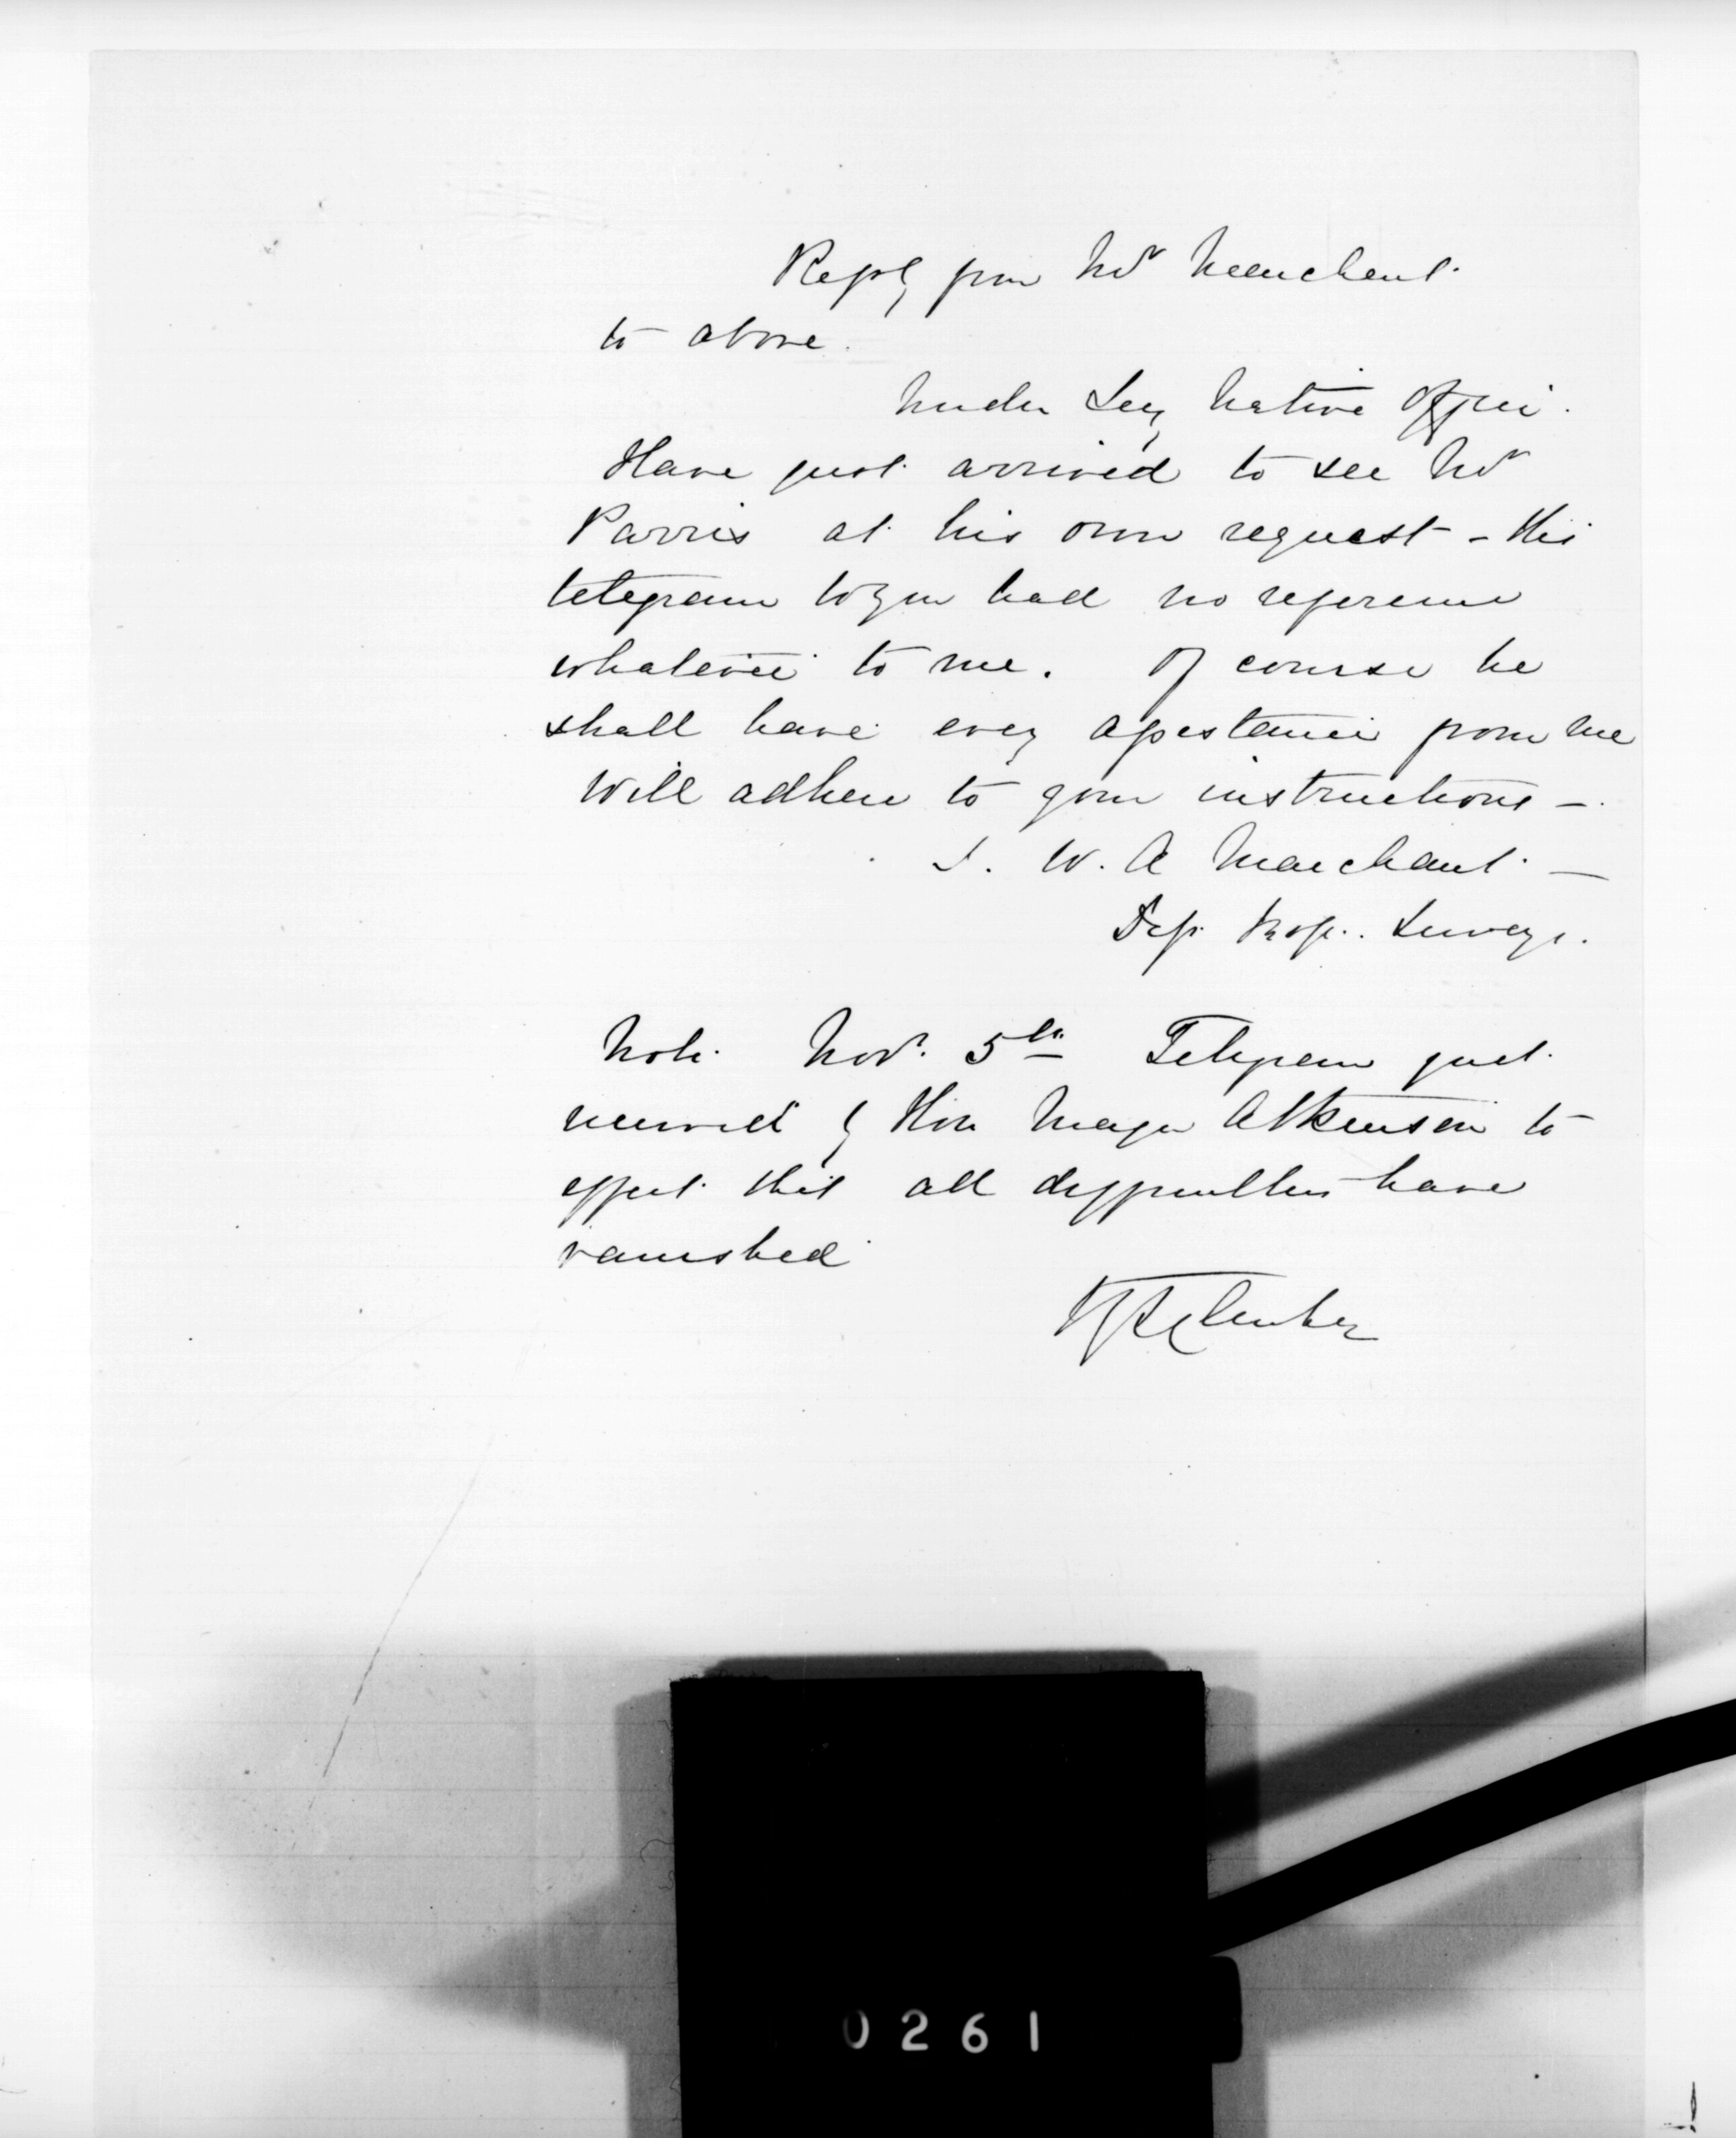 Reply from Mr Marchant
to above.
Under Secy Native Office.
Have just arrived to see Mr
Parris at his own request - His
telegram to you had no reference
whatever to me. Of course he
shall have every assistance from me
Will adhere to your instructions -
W. A Marchant -
Dep. Insp. Surveys.
Note Nov. 5th Telegram just
received by Hon Major Atkinson to
effect that all difficulties have
vanished
0261